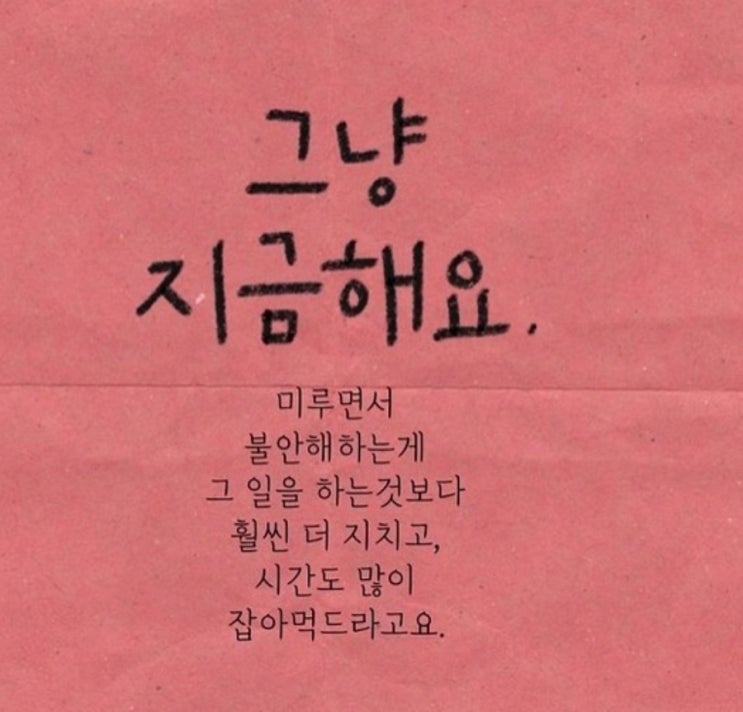 그냥
지금해요.
미루면서
불안해하는게
그 일을 하는것보다
훨씬 더 지치고,
시간도 많이
잡아먹드라고요.